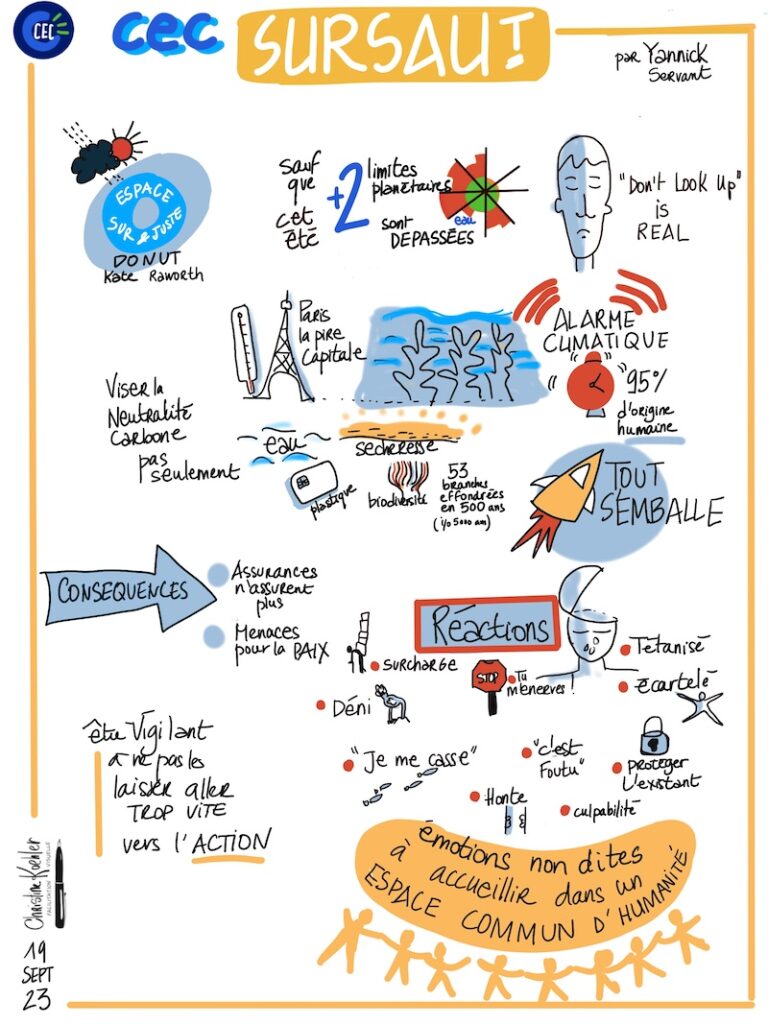 CEC
cec
SURSAUT
par Yannick
Servant
ESPACE
SUR & JUSTE
DONUT
Kate Raworth
sauf
que
cet
été
+2 limites
planétaires
sont
DEPASSÉES
eau
"Don't Look Up"
is
REAL
Paris
la pire
Capitale
ALARME
CLIMATIQUE
95%
d'origine
humaine
Viser la
Neutralité
Carbone
pas
seulement
eau
secheresse
plastique
biodiversité
53
branches
effondrées
en 500 ans
(i/o 5000 am)
TOUT
S'EMBALLE
CONSEQUENCES
Assurances
n'assurent
plus
Menaces
pour la PAIX
Réactions
surcharge
STOP
Tu
m'énerves!
Tétanisé
écartelé
Déni
"Je me casse"
"c'est
Foutu"
protéger
L'existant
Honte
culpabilité
être Vigilant
à ne pas les
laisser aller
TROP VITE
vers l'ACTION
émotions non dites
à accueillir dans un
ESPACE COMMUN D'HUMANITÉ
Christine Koehler
FACILITATION VISUELLE
19
SEPT
23